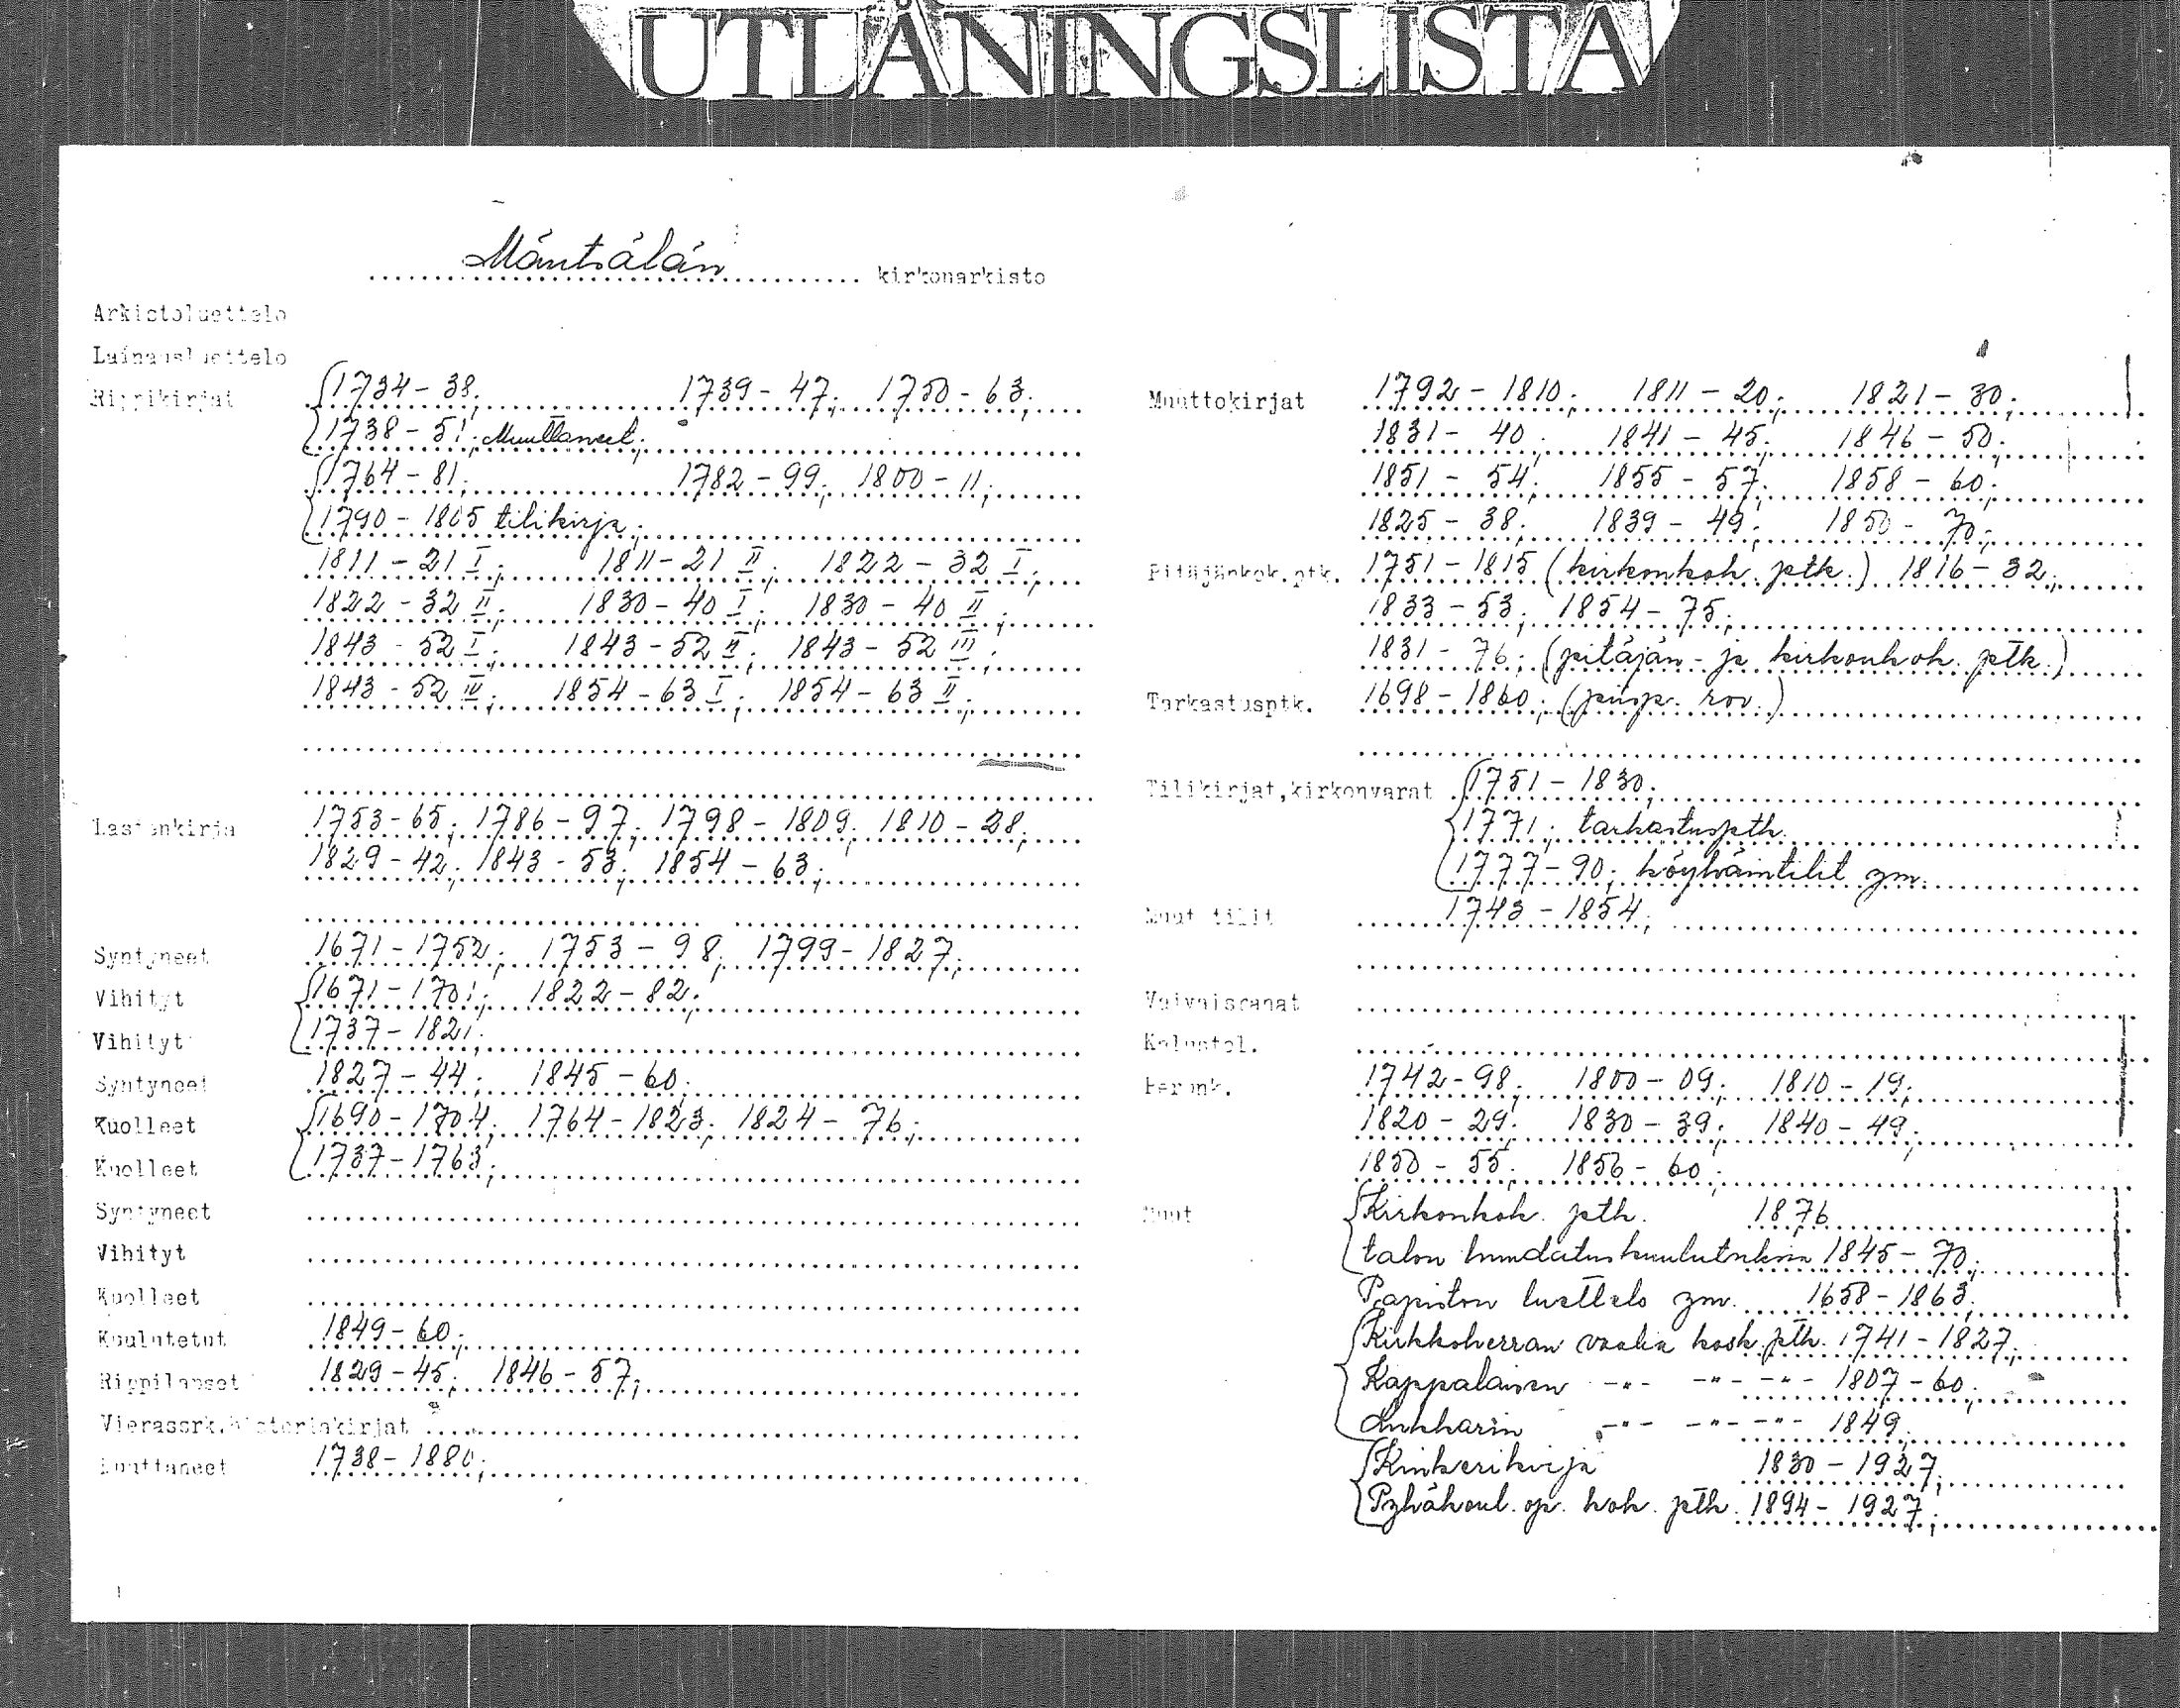 UTLÅNINGSLISTA
Mäntsälän kirkonarkisto
Arkistoluettelo
Lainausluettelo
Rippikirjat 1734-38; 1739-47; 1750-63;
1738-51; Muuttaneet;
1764-81; 1782-99; 1800-11;
1790-1805 tilikirja;
1811-21 I; 1811-21 II; 1822-32 I;
1822-32 II; 1830-40 I; 1830-40 II;
1843-52 I; 1843-52 II; 1843-52 III;
1843-52 IV; 1854-63 I; 1854-63 II;
Lastenkirja 1753-65; 1786-97; 1798-1809; 1810-28;
1829-42; 1843-53; 1854-63;
Syntyneet 1671-1752; 1753-98; 1799-1827;
Vihityt 1671-1701; 1822-82;
Vihityt 1737-1821;
Syntyneet 1827-44; 1845-60;
Kuolleet 1690-1704; 1764-1823; 1824-76;
Kuolleet 1737-1763;
Syntyneet
Vihityt
Kuolleet
Kuulutetut 1849-60;
Rippilapset 1829-45; 1846-57;
Vierassrk.historiakirjat
Muuttaneet 1738-1880;
Muuttokirjat 1792-1810; 1811-20; 1821-30;
1831-40; 1841-45; 1846-50;
1851-54; 1855-57; 1858-60;
1825-38; 1839-49; 1850-70;
Pitäjänkok.ptk. 1751-1815 (kirkonkok. ptk.) 1816-32;
1833-53; 1854-75;
1831-76; (pitäjän- ja kirkonkok. ptk.)
Tarkastusptk. 1698-1860; (piisp. rov.)
Tilikirjat,kirkonvarat 1751-1830;
1771; tarkastusptk.
1777-90; köyhäintilit ym.
Muut tilit 1743-1854;
Vaivaisranat
Kalustol.
Peronk. 1742-98; 1800-09; 1810-19;
1820-29; 1830-39; 1840-49;
1850-55; 1856-60;
Muut Kirkonkok. ptk. 1876
talon huudatuskuulutuksia 1845-70;
Papiston luettelo ym. 1658-1863;
Kirkkoherran vaalia kosk. ptk. 1741-1827;
Kappalaisen -"- -"- -"- 1807-60;
Lukkarin -"- -"- -"- 1849;
Kinkerikirja 1830-1927;
Pyhäkoul. op. kok. ptk. 1894-1927;